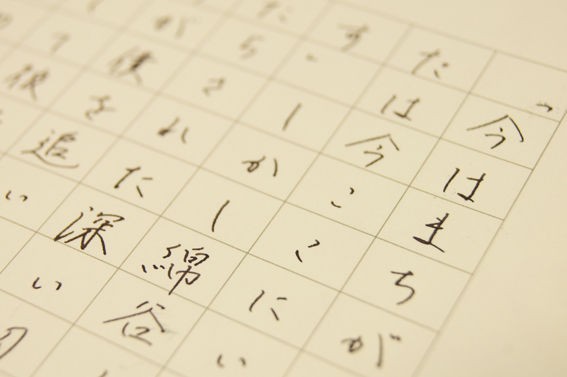 「今はまちが
たは今ここにい
す。しかし綿谷
ちされた深い
が僕を追い
て彼